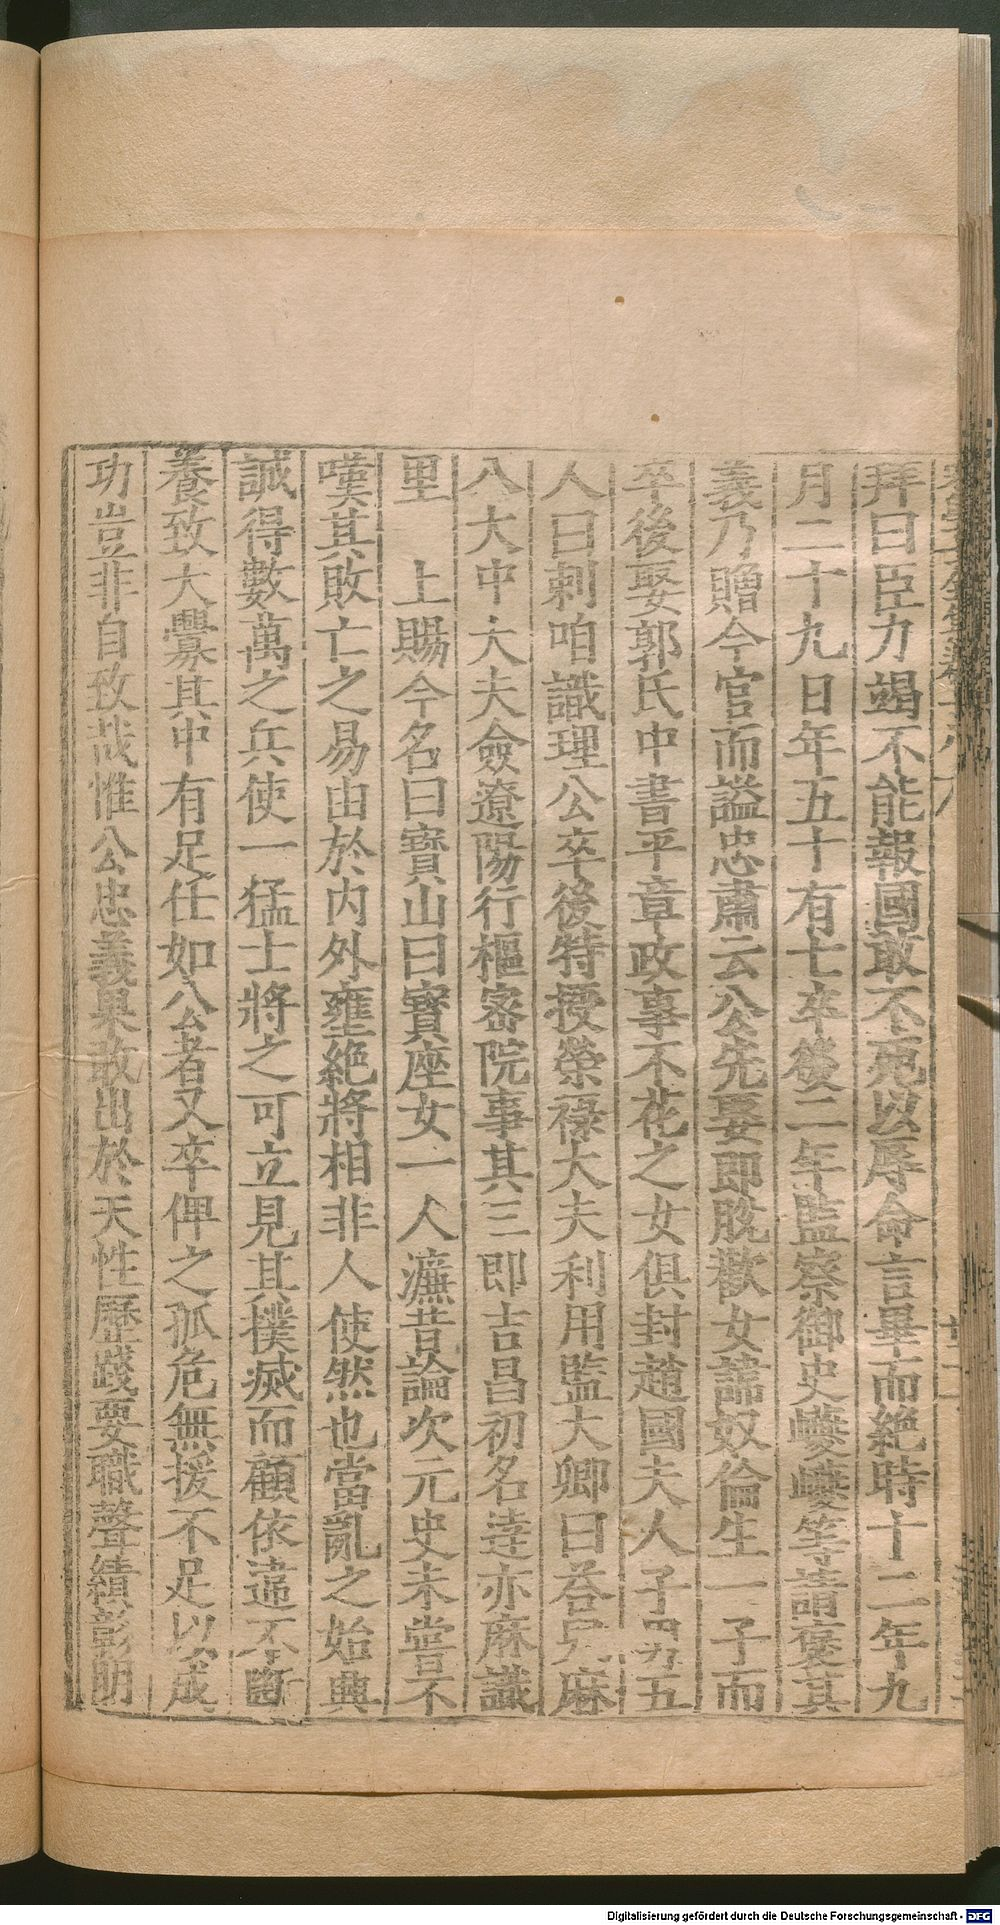 拜曰臣力竭不能報國敢不死以辱命言畢而絕時十二年九
月二十九日年五十有七卒後二年監察御史巙巙等請褒其
義乃贈今官而謚忠肅云公先娶即脫歡女諱奴倫生一子而
卒後娶郭氏中書平章政事不花之女俱封趙國夫人子男五
人曰剌咱識理公卒後特授榮祿大夫利用監大卿曰荅兒麻
八大中大夫僉遼陽行樞密院事其三即吉昌初名達亦麻識
里　上賜今名曰寶山曰寶座女一人濂昔論次元史未嘗不
嘆其敗亡之易由於內外壅絕將相非人使然也當亂之始興
誠得數萬之兵使一猛士將之可立見其撲滅而顧依違不斷
養致大釁其中有足任如公者又卒俾之孤危無援不足以成
功豈非自致哉惟公忠義果敢出於天性歷踐要職聲績彰朗
Digitalisierung gefördert durch die Deutsche Forschungsgemeinschaft - DFG